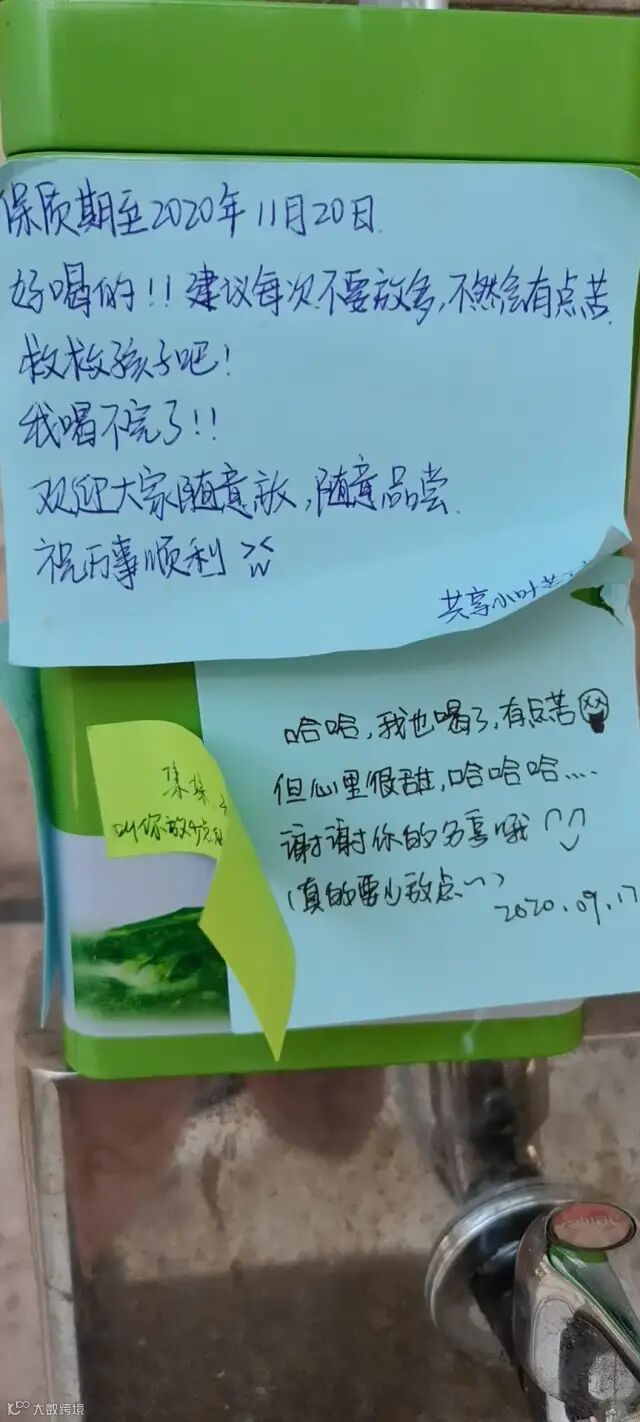 保质期至2020年11月20日.
好喝的!!建议每次不要放多,不然会有点苦.
救救孩子吧!
我喝不完了!!
欢迎大家随意放,随意品尝.
祝万事顺利
共享小叶苦
哈哈,我也喝了,有点苦
但心里很甜,哈哈哈....
谢谢你的分享哦
(真的要少放点~)
2020.09.17
叫你放
大数跨境